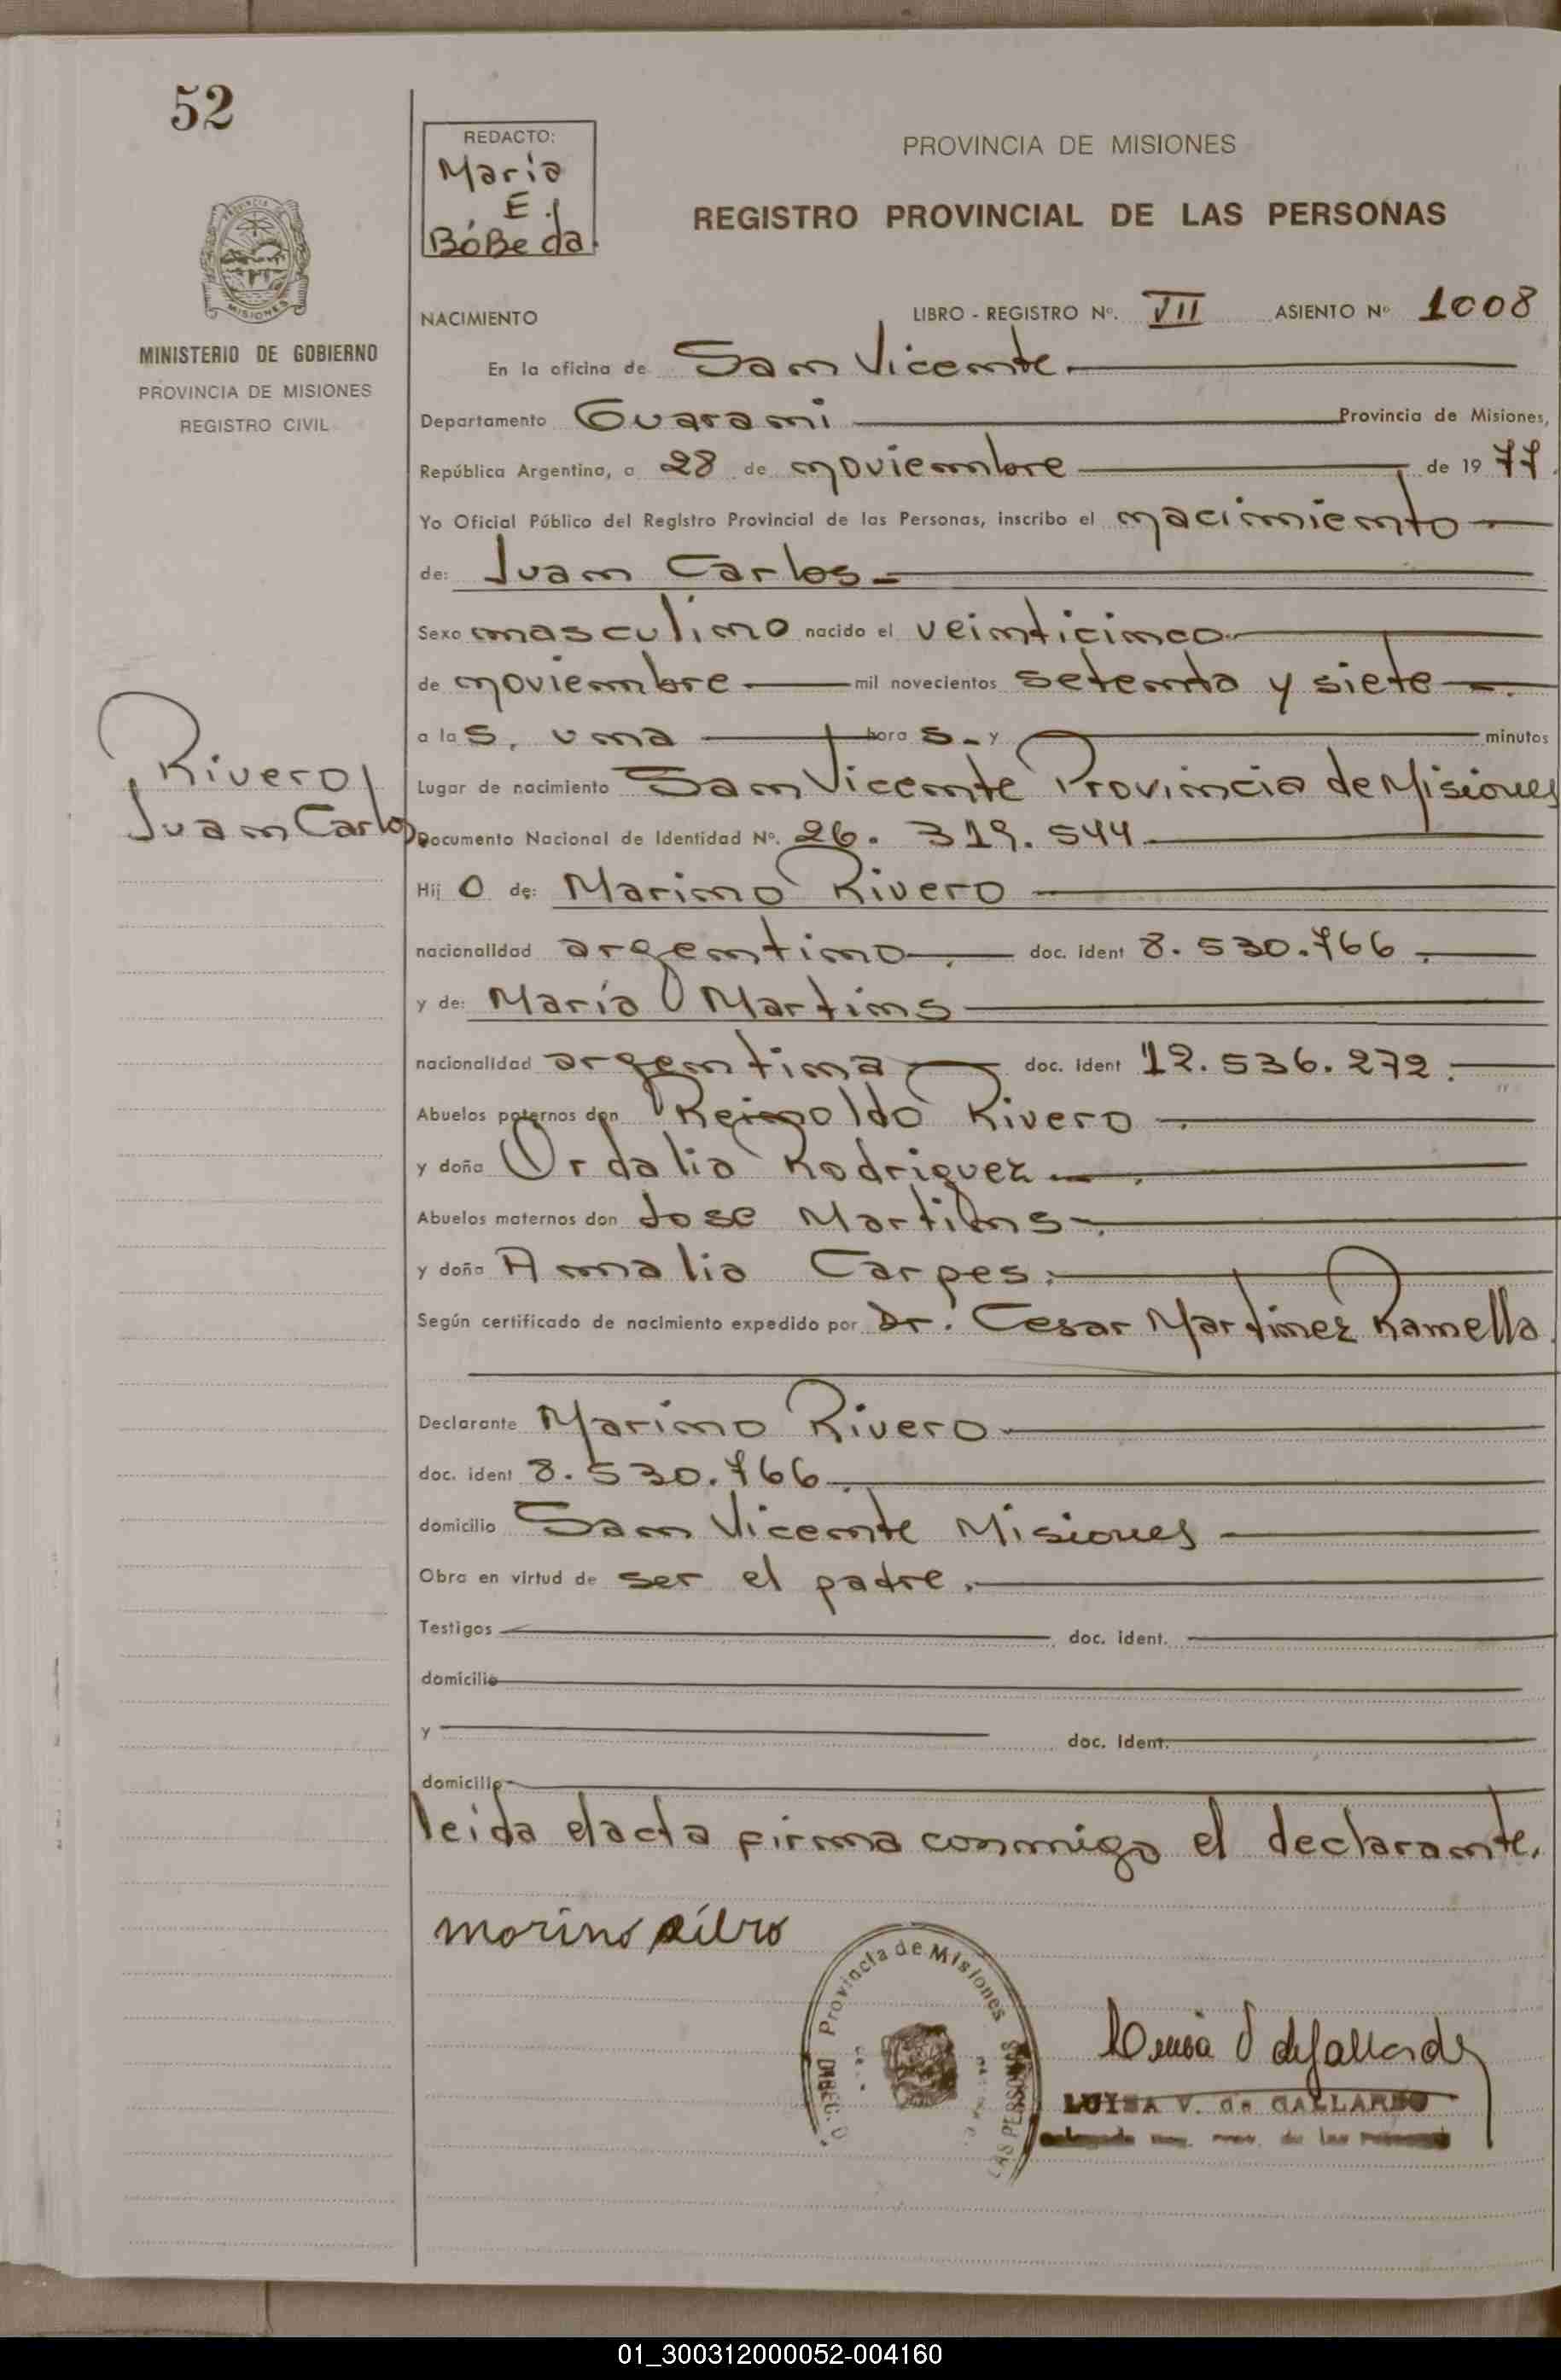 52
REDACTO:
Maria
E.
BóBeda.
PROVINCIA DE MISIONES
REGISTRO PROVINCIAL DE LAS PERSONAS
PROVINCIA
MISIONES
MINISTERIO DE GOBIERNO
PROVINCIA DE MISIONES
REGISTRO CIVIL
NACIMIENTO LIBRO - REGISTRO Nº. VII ASIENTO Nº 1008
En la oficina de San Vicente.
Departamento Guarani Provincia de Misiones,
República Argentina, a 28 de noviembre de 19 77.
Yo Oficial Público del Registro Provincial de las Personas, inscribo el nacimiento
de: Juan Carlos
Sexo masculino nacido el veinticinco
de noviembre mil novecientos setenta y siete
a las, una hora s y minutos
Rivero
Juan Carlos
Lugar de nacimiento San Vicente Provincia de Misiones
Documento Nacional de Identidad Nº. 26. 319. 544
Hij o de: Marino Rivero
nacionalidad argentino doc. ident 8. 530. 766.
y de: María Martins
nacionalidad argentina doc. ident 12. 536. 272.
Abuelos paternos don Reinoldo Rivero
y doña Ordalia Rodriguez
Abuelos maternos don Jose Martins
y doña Amalia Carpes.
Según certificado de nacimiento expedido por Dr. Cesar Martinez Ramella.
Declarante Marino Rivero
doc. ident 8. 530. 766
domicilio San Vicente Misiones
Obra en virtud de ser el padre.
Testigos doc. ident.
domicilio
y doc. ident.
domicilio
leida el acta firma conmigo el declarante.
Provincia de Misiones
LAS PERSONAS
LUISA V. de GALLARDO
01_300312000052-004160